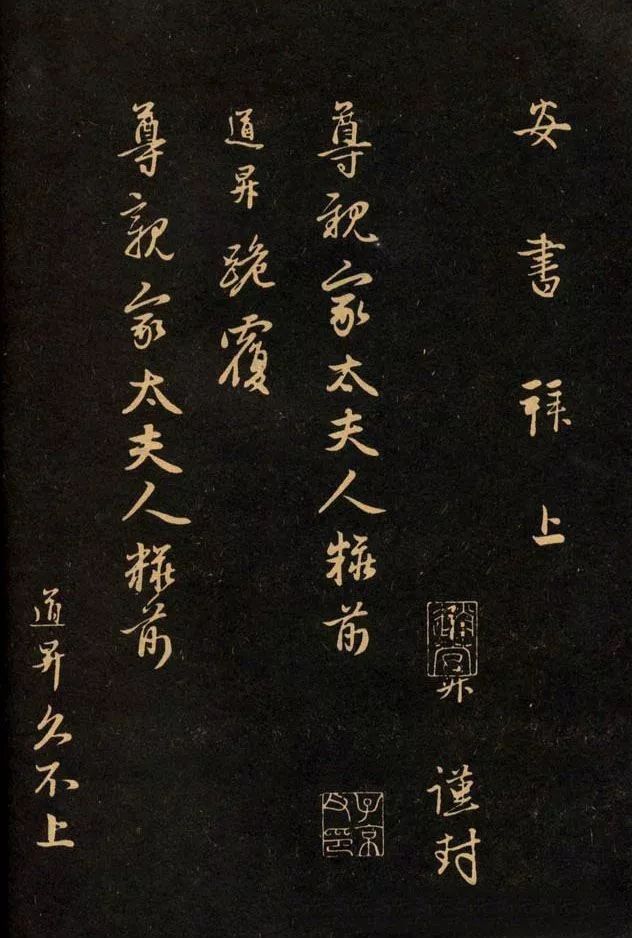 安書拜上
趙管
昇謹封
尊親家太夫人粧前
子京父印
道昇跪覆
尊親家太夫人粧前
道昇久不上